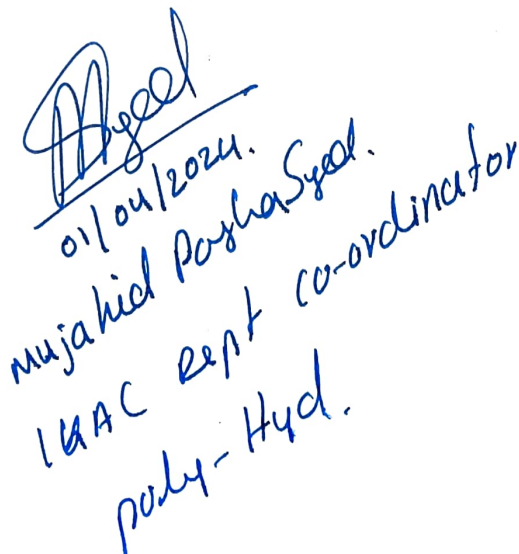 MSyed
01/04/2024.
Mujahid Pasha Syed.
IQAC Dept co-ordinator
poly-Hyd.